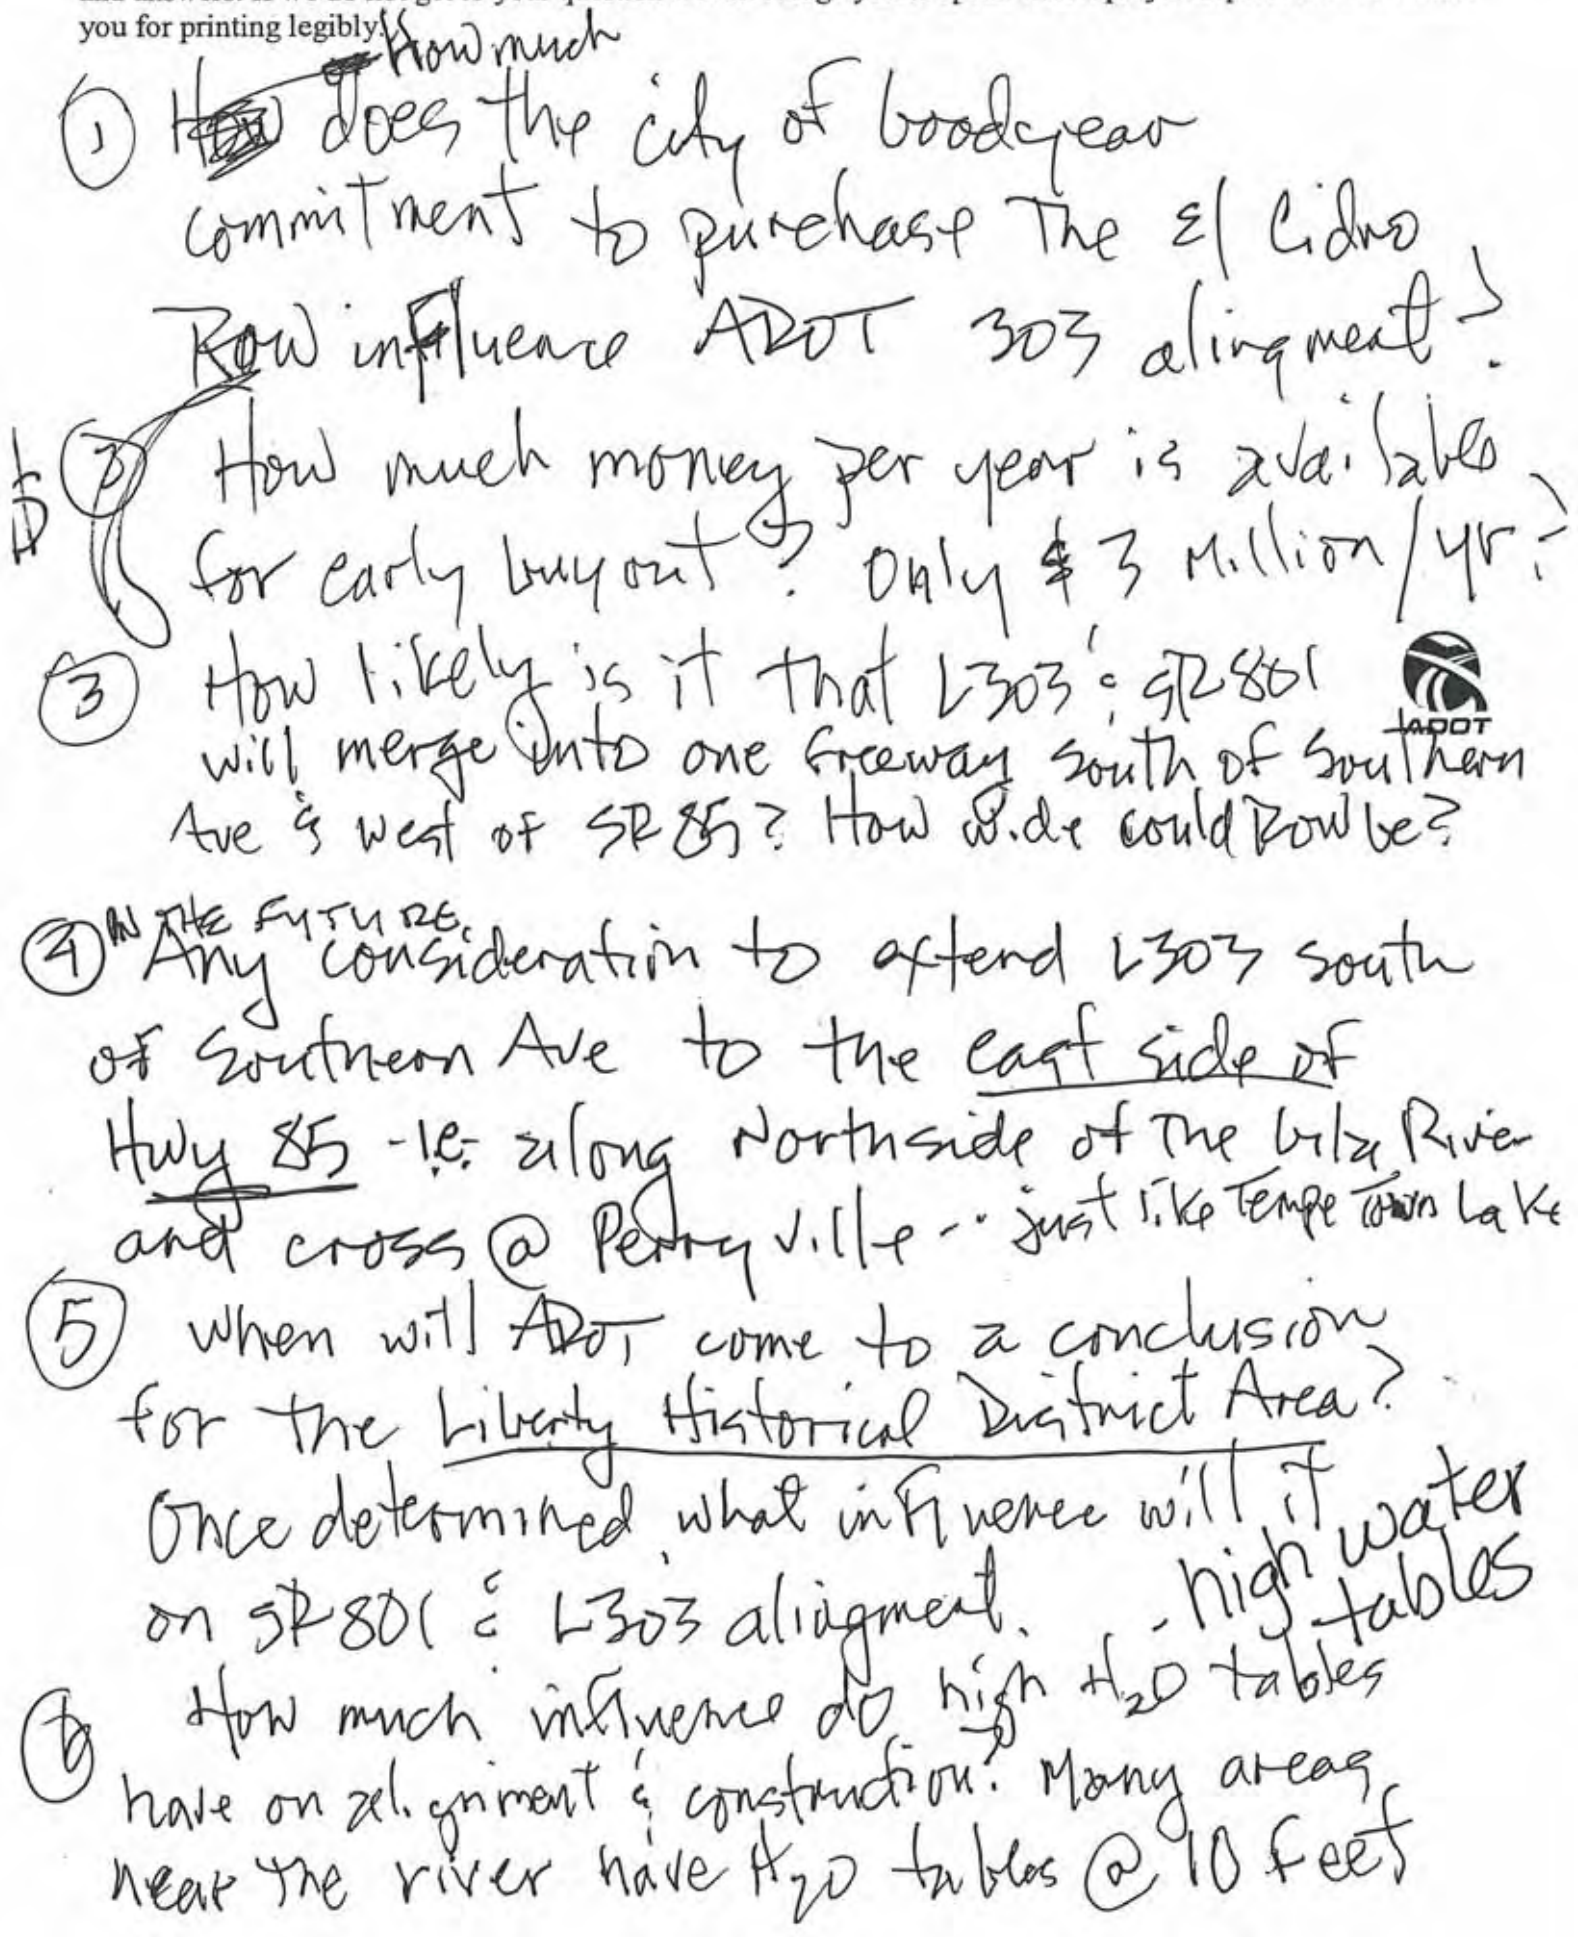 you for printing legibly.
How much
① does the city of Goodyear
commitment to purchase The El Cidro
ROW influence ADOT 303 alingment?
$ ② How much money per year is available
for early buyout? Only $3 Million/yr?
③ How likely is it that L303 & SR801
ADOT
will merge into one freeway south of Southern
Ave & west of SR85? How wide could ROW be?
④ IN THE FUTURE,
Any consideration to extend L303 south
of Southern Ave to the east side of
Hwy 85 - i.e. along Northside of The Gila River
and cross @ Perryville -- just like Tempe Town Lake
⑤ When will ADOT come to a conclusion
for the Liberty Historical District Area?
Once determined, what influence will it
on SR801 & L303 alingment.
- high water
tables
⑥ How much influence do high H2O tables
have on alignment & construction? Many areas
near the river have H2O tables @ 10 feet